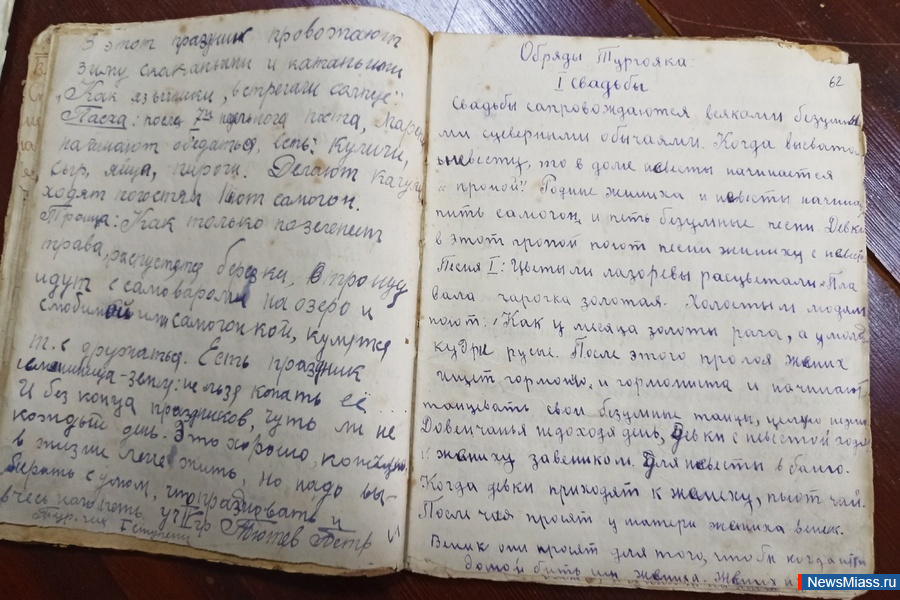 В этот праздник провожают
зиму скаканьями и катаньями
"Как язычники, встречали солнце"
Пасха: после 7ми недельного поста,
начинают объедаться, есть: Куличи,
сыр, яйца, пироги. Делают качули
ходят по гостям Пют самогон.
Троица: Как только позеленеет
трава, распустятся березки, В троицу
идут с самоваром на озеро и
с любимой или самогонкой, кумятся
т.е дружатся. Есть праздник
именинница-земля: нельзя копать её...
И без конца праздников, чуть ли не
каждый день. Это хорошо, конечно,
в жизни легче жить, но надо вы-
бирать с умом, что праздновать и
в честь кого уч II гр Тютев Петр
I ступени
Обряды Тургояка:
62
I Свадьбы
Свадьбы сапровождаются всякими безумны
ми суеверными обычаями. Когда высватоют
невесту, то в доме невесты начинается
"пропой". Родные жениха и невесты начина
пить самогон и петь безумные песни. Девки
в этот пропой поют песни жениху с невест
Песня I: Цветы ли лазоревы расцветали "Пла
вала чарочка золотая. Холостым людям
поют: "Как у месяца золоты рага, а у молод
кудри русые. После этого пропоя жених
ищет гормонь, и гормониста и начинают
танцевать свои безумные танцы, целую неделю
До венчанья не доходя день, Девки с невестой
к жениху за веником. Для невесты в баню.
Когда девки приходят к жениху, пьют чай.
После чая просят у матери жениха веник.
Веник они просят для того, чтобы когда итти
домой бить им жениха. Жених и
NewsMiass.ru